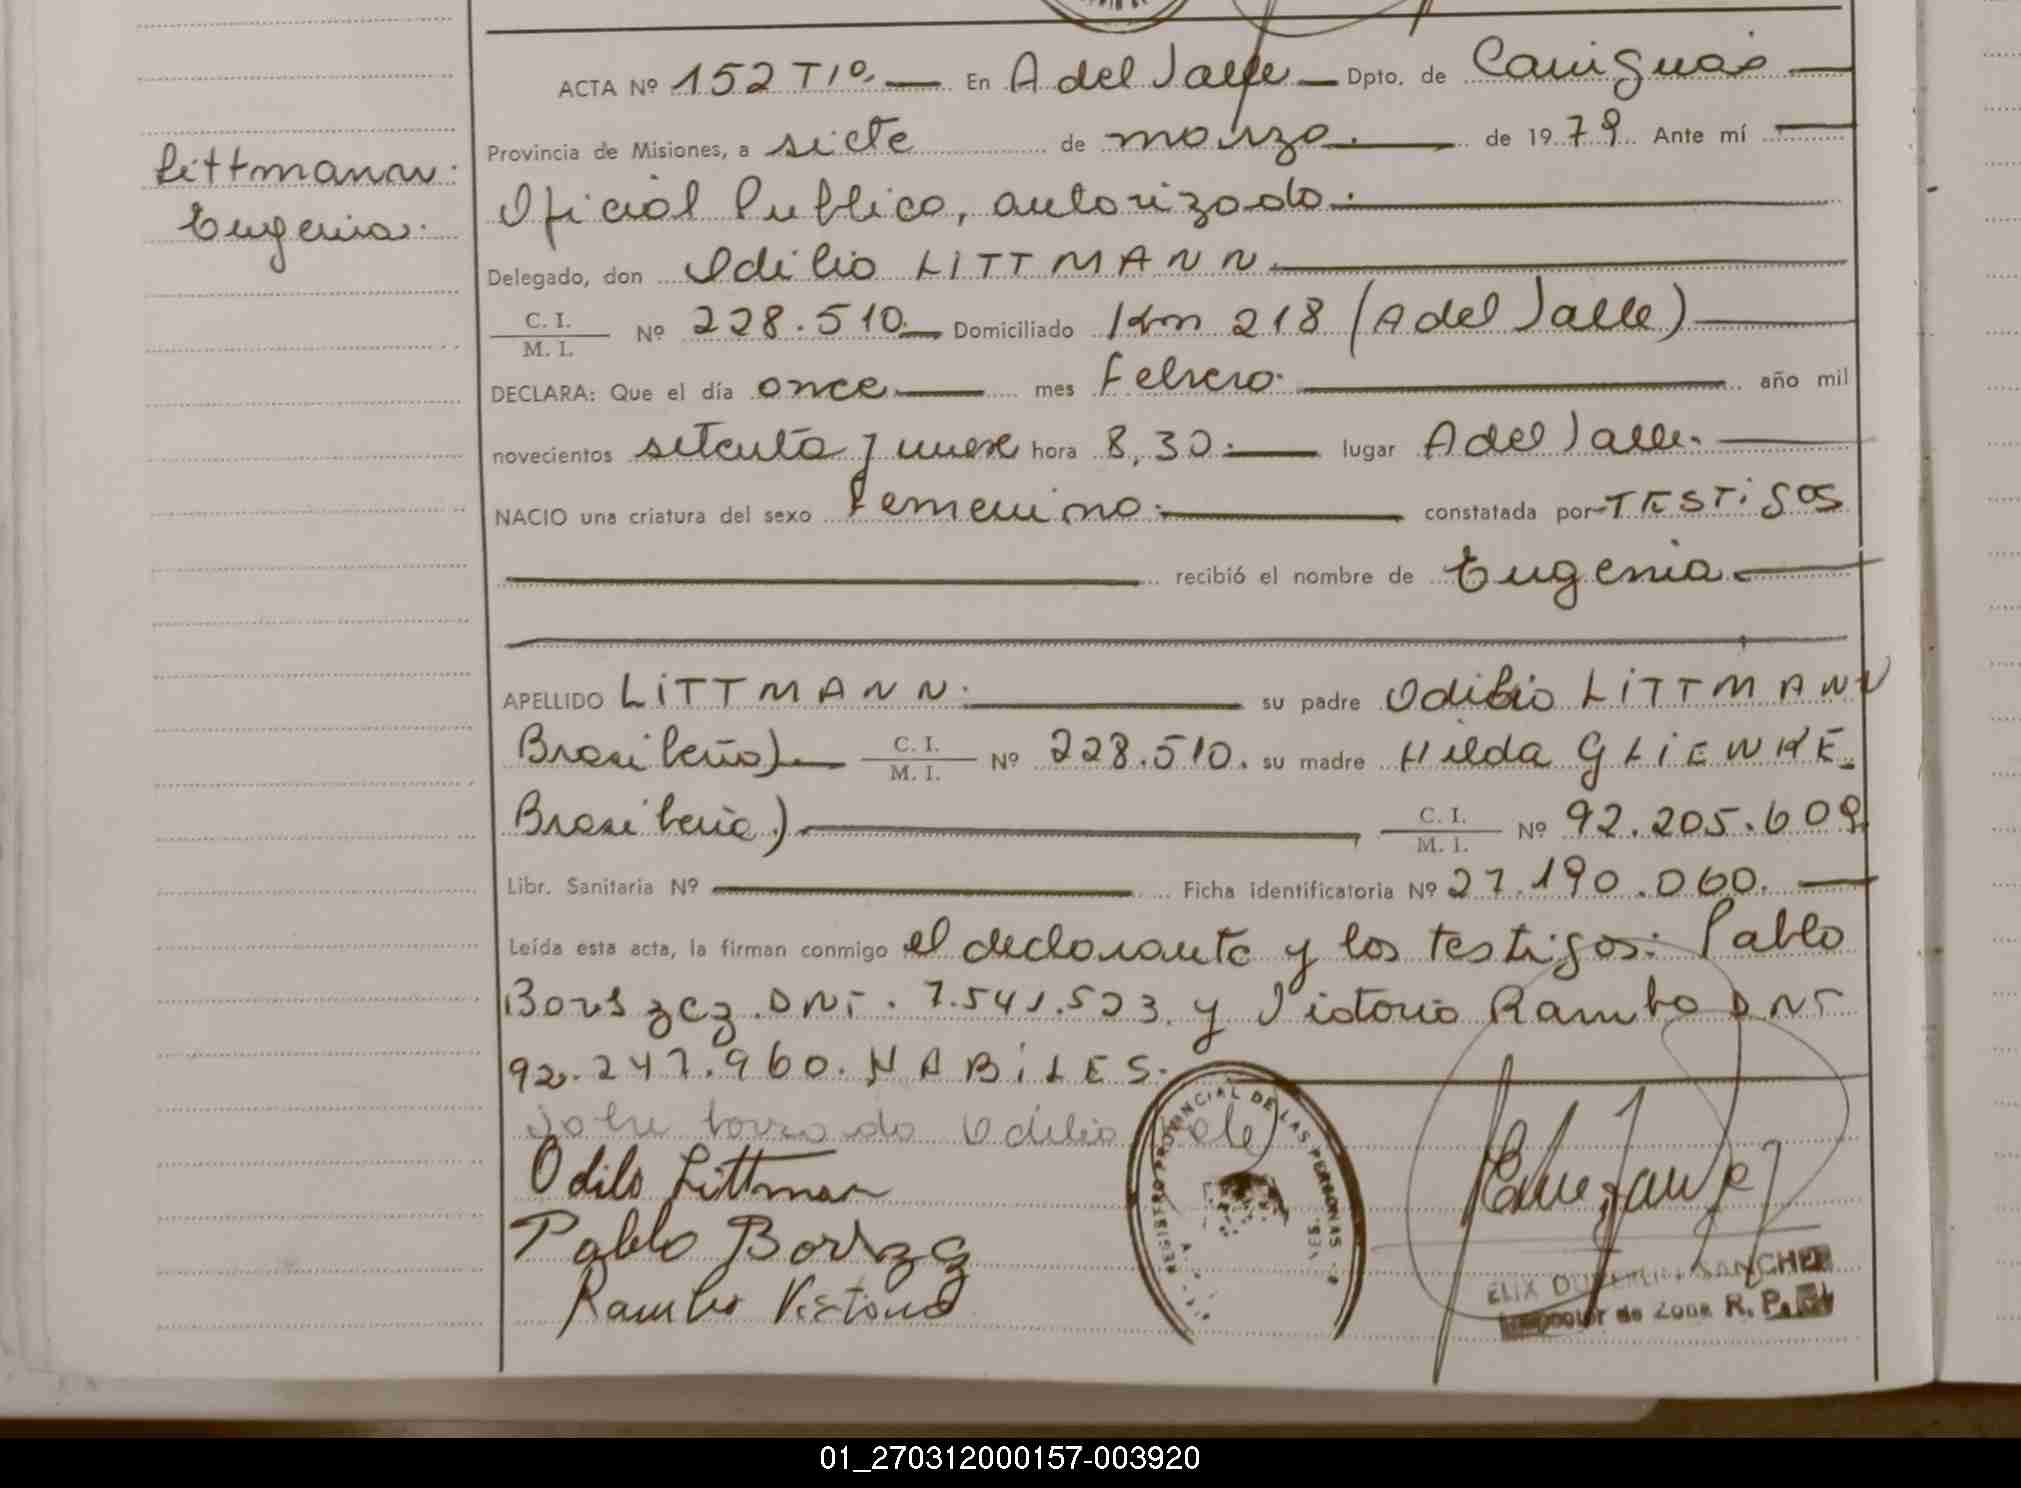 ACTA Nº 152 Tº1º. En A del Valle Dpto. de Cainguás
Littmann.
Eugenia.
Provincia de Misiones, a siete de marzo. de 1979. Ante mí
Oficial Publico, autorizado.
Delegado, don Odilio LITTMANN
C. I.
M. I. Nº 228.510. Domiciliado Km 218 (A del Valle)
DECLARA: Que el día once mes Febrero. año mil
novecientos setenta y nueve hora 8,30. lugar A del Valle.
NACIO una criatura del sexo Femenino. constatada por TESTigos
recibió el nombre de Eugenia
APELLIDO LITTMANN. su padre Odilio LITTMANN
Brasileño) C. I.
M. I. Nº 228.510. su madre Hilda GLIENKE.
Brasileña.) C. I.
M. I. Nº 92.205.609
Libr. Sanitaria Nº Ficha identificatoria Nº 27.190.060.
Leída esta acta, la firman conmigo el declarante y los testigos: Pablo
DNI. 7.541.523. y Victorio Rambo DNI
92.247.960. HABILES.
Sobre borrado Odilio Vale)
Odilo Littman
Pablo
Rambo Victorio
REGISTRO PROVINCIAL DE LAS PERSONAS
SANCHEZ
de Zona R. P.
01_270312000157-003920